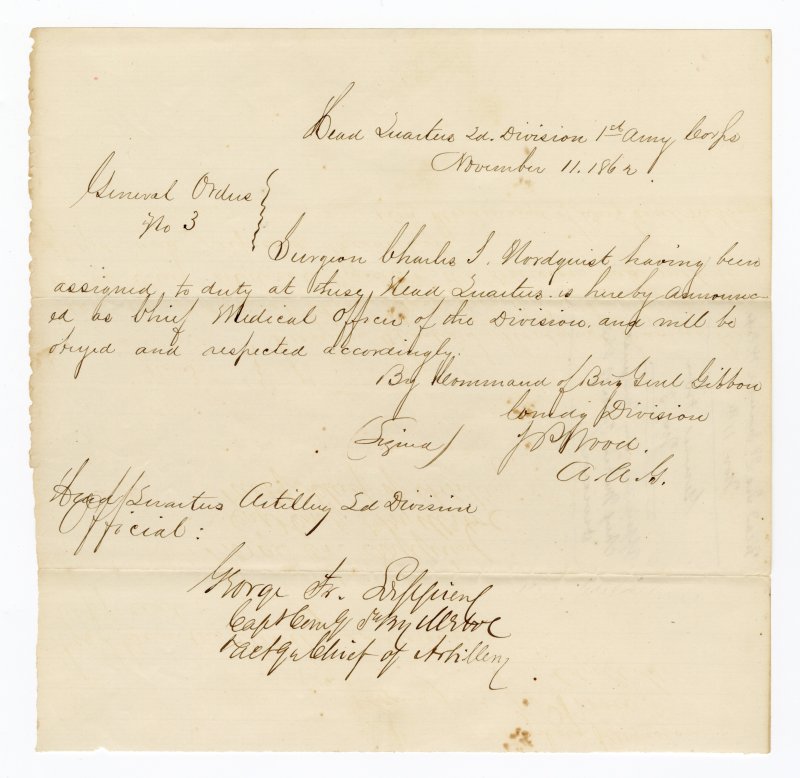 Head Quarters 2d. Division 1st Army Corps
November 11. 1862
General Orders
No 3
Surgeon Charles J. Nordquist, having been
assigned to duty at these Head Quarters is hereby announc-
ed as Chief Medical Officer of the Division and will be
obeyed and respected accordingly.
By Command of Brig Genl Gibbon
Comdg Division
(Signed) J P Wood.
A. A. G.
Head Quarters Artillery 2d Division
Official:
George Fr. Leppien
Capt Comg 5th Bty Me Vol
& actg Chief of Artillery